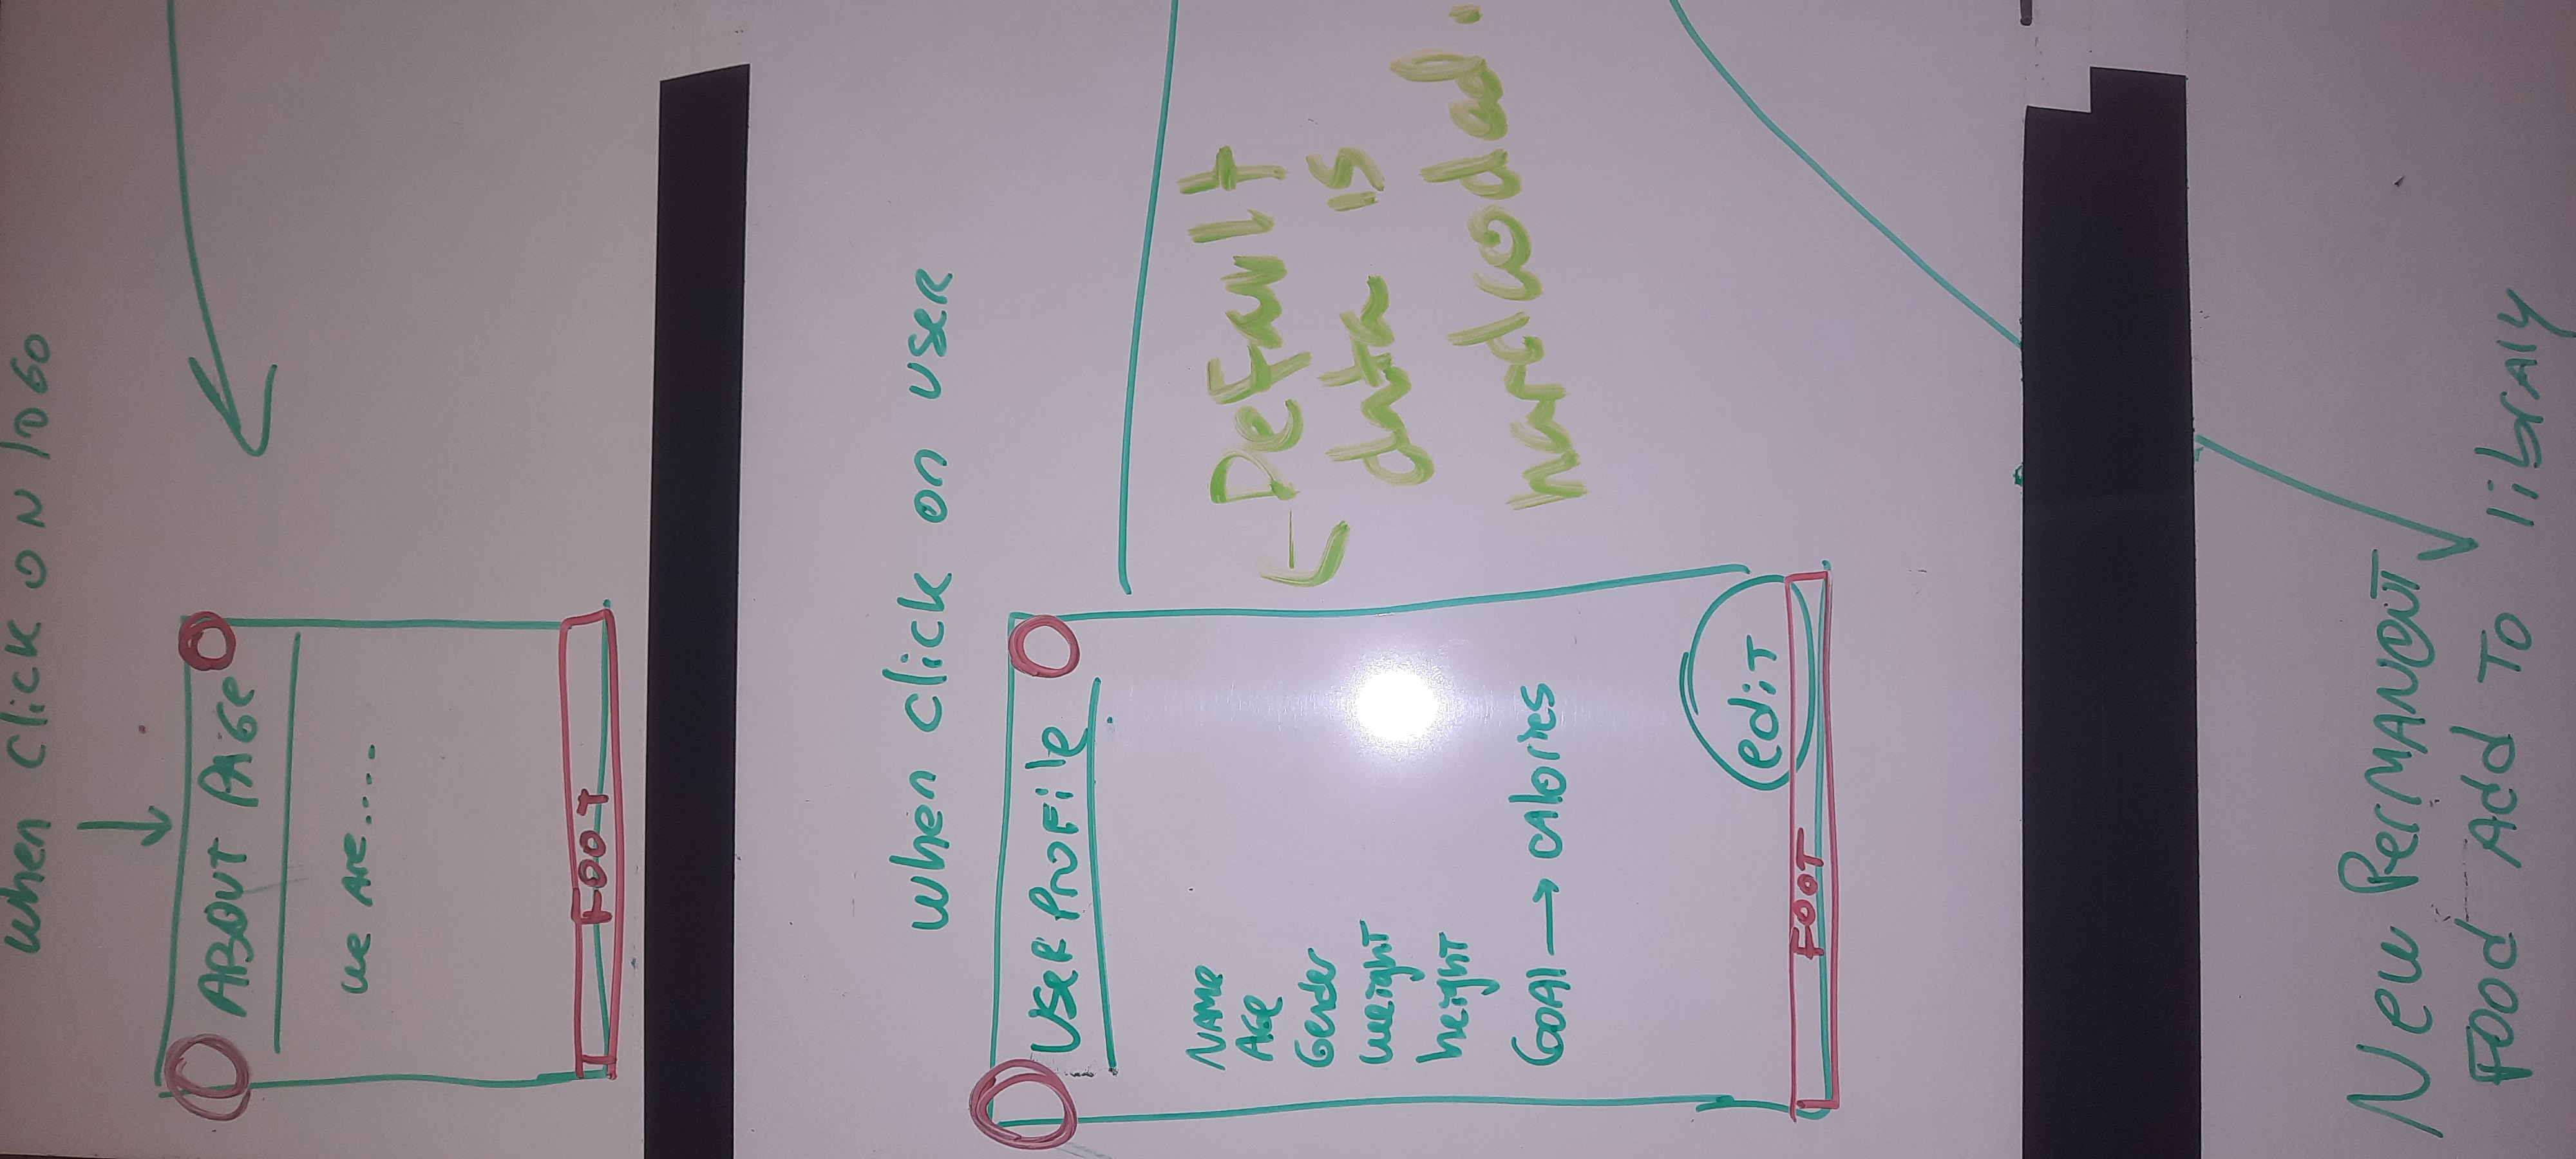 when click ON logo
ABOUT PAGe
we Are....
FOOT
when click on useR
USeR PROFile
NAMe
Age
Gender
weight
height
GOAl → CAlories
Default
data is
hardcoded.
edit
FOOT
New PerMANeNT
FOOd Add TO librAry